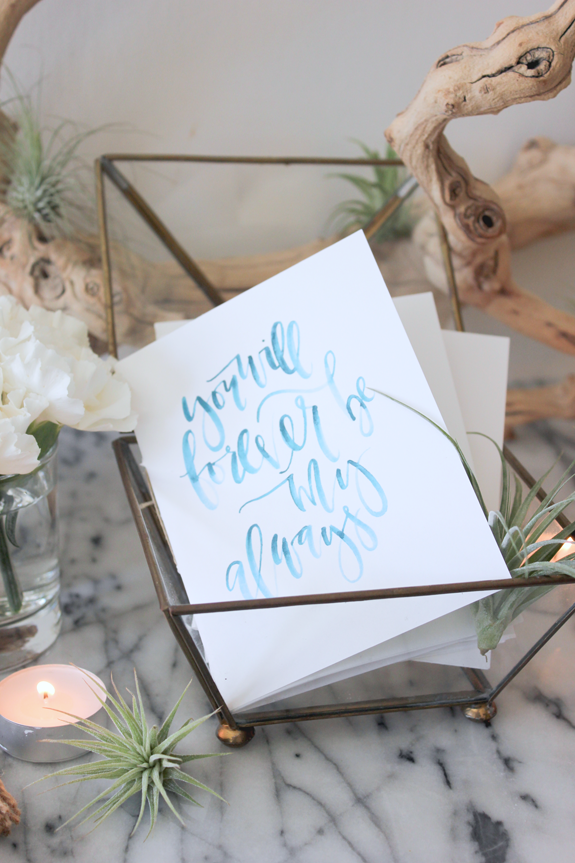 you will
forever be
my
always